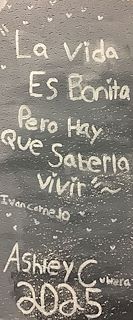 La vida
Es Bonita
Pero Hay
Que Saberla
vivir
Ivan cornejo
Ashley C
2025